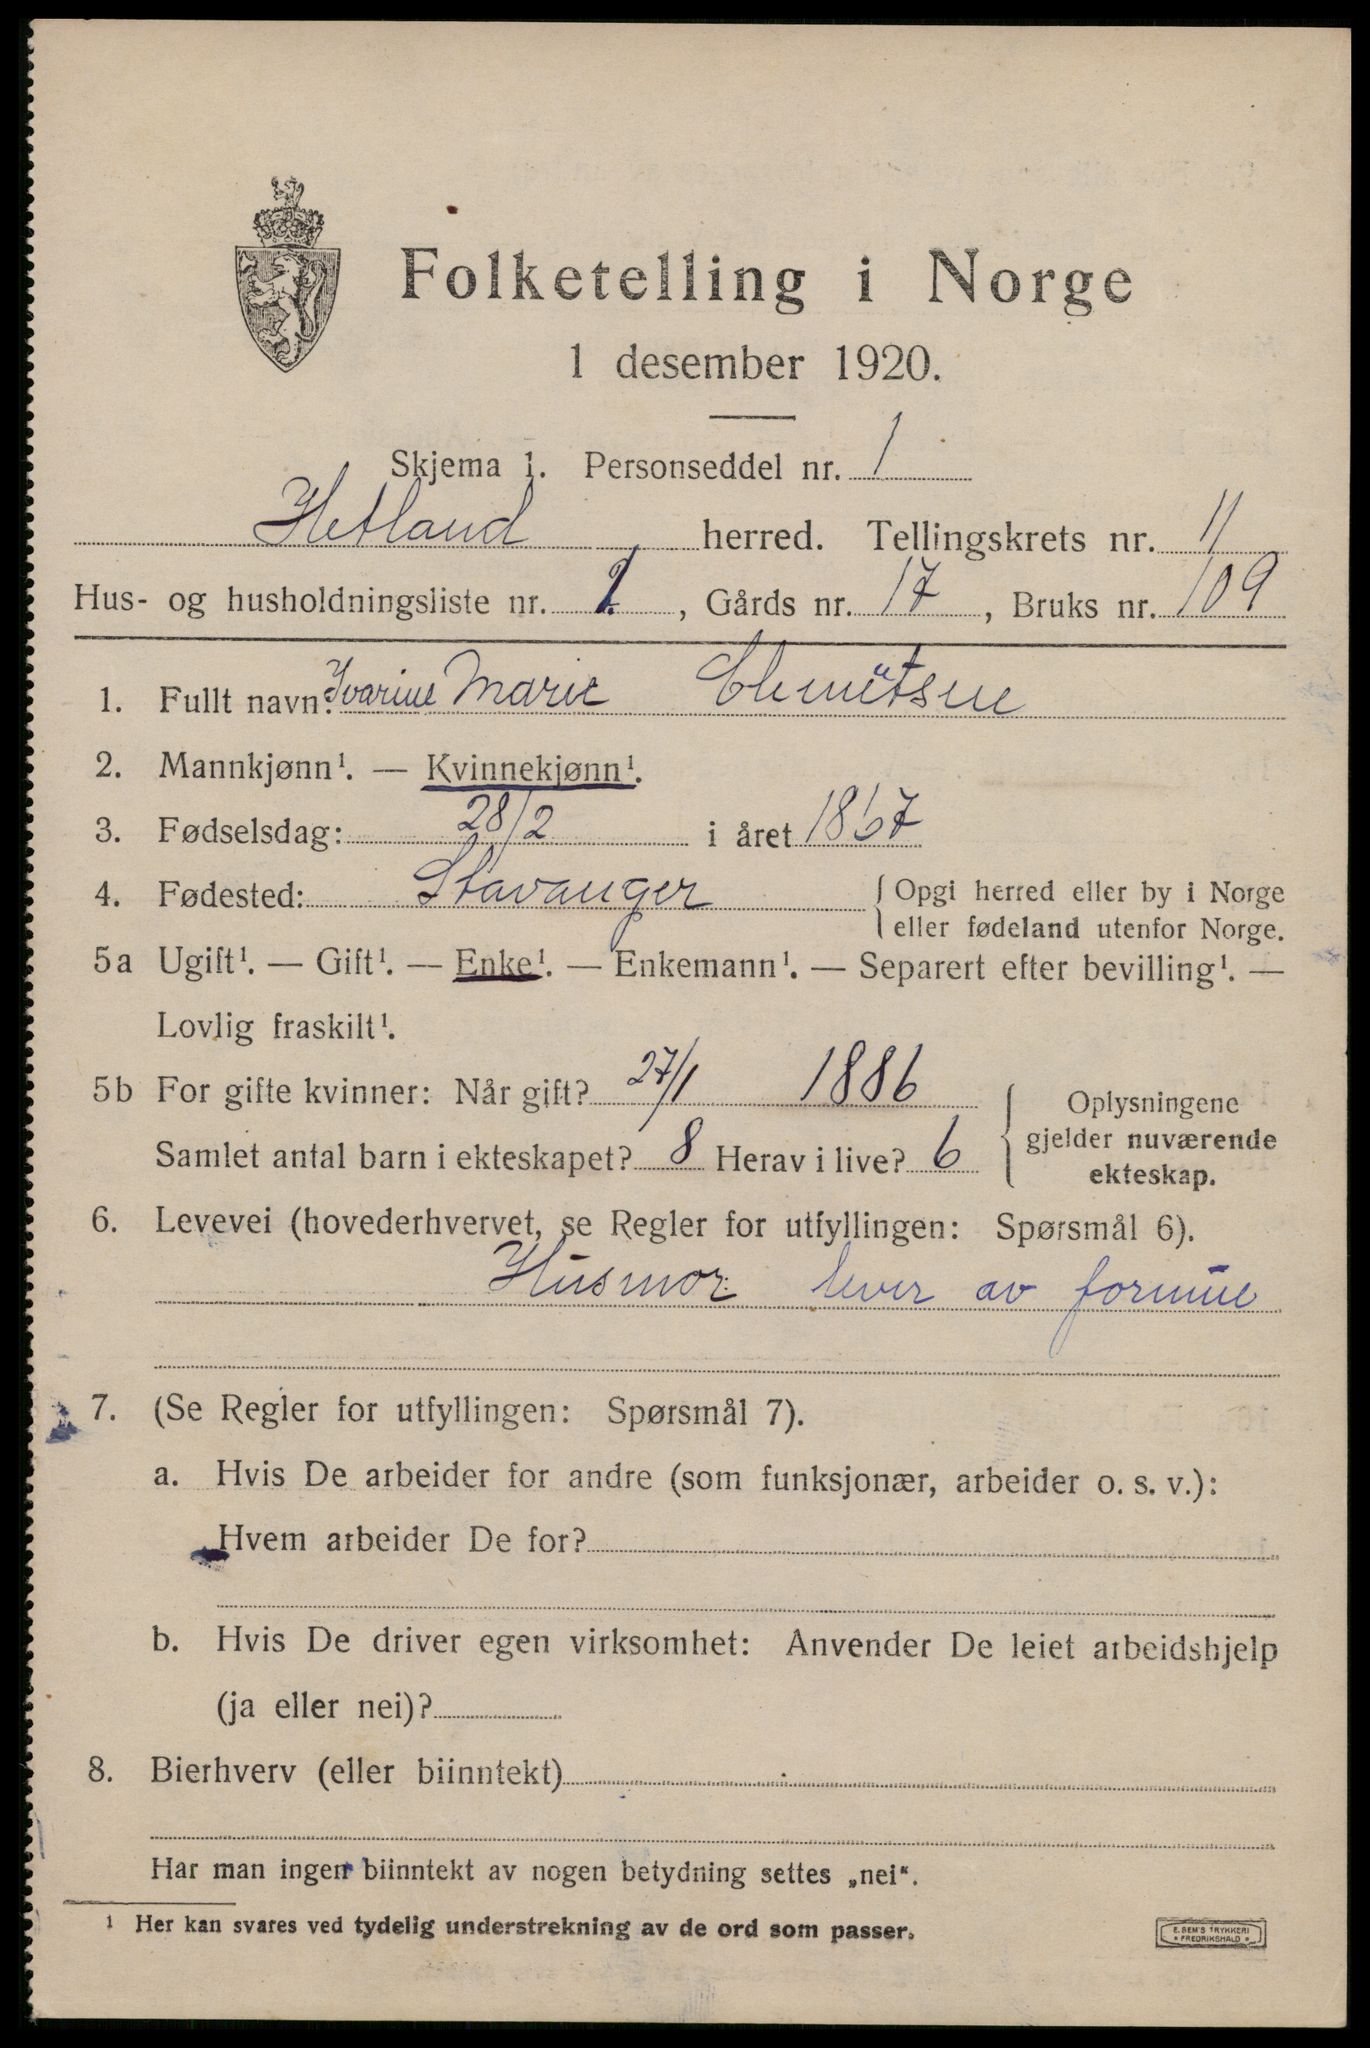 Folketelling i Norge
1 desember 1920.
Skjema 1. Personseddel nr. 1
Hetland herred. Tellingskrets nr. 11
Hus- og husholdningsliste nr. 1, Gårds nr. 17, Bruks nr. 109
1. Fullt navn: Ivarine Marie
2. Mannkjønn¹. — Kvinnekjønn¹.
3. Fødselsdag: 28/2 i året 1867
4. Fødested: Stavanger { Opgi herred eller by i Norge
eller fødeland utenfor Norge.
5a Ugift¹. — Gift¹. — Enke¹. — Enkemann¹. — Separert efter bevilling¹. —
Lovlig fraskilt¹.
5b For gifte kvinner: Når gift? 27/1 1886
Samlet antal barn i ekteskapet? 8 Herav i live? 6
{ Oplysningene
gjelder nuværende
ekteskap.
6. Levevei (hovederhvervet, se Regler for utfyllingen: Spørsmål 6).
Husmor. lever av formue
7. (Se Regler for utfyllingen: Spørsmål 7).
a. Hvis De arbeider for andre (som funksjonær, arbeider o. s. v.):
Hvem arbeider De for?
b. Hvis De driver egen virksomhet: Anvender De leiet arbeidshjelp
(ja eller nei)?
8. Bierhverv (eller biinntekt)
Har man ingen biinntekt av nogen betydning settes „nei“.
¹ Her kan svares ved tydelig understrekning av de ord som passer.
E. SEM'S TRYKKERI
* FREDRIKSHALD *